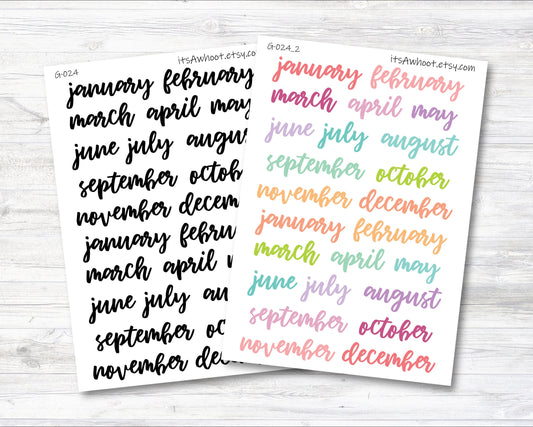 G-024
itsAwhoot.etsy.com
january february
march april may
june july august
september octo
november decem
january februar
march april ma
june july augu
september octo
november decem
G-024_2
itsAwhoot.etsy.com
january february
march april may
june july august
september october
november december
january february
march april may
june july august
september october
november december